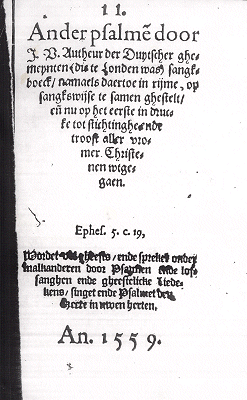 11.
Ander psalmē door
J. V. Autheur der Duytscher ghe-
meynten (die te Londen was) sangk-
boeck / namaels daertoe in rijme, op
sangkswijse te samen ghestelt /
eñ nu op het eerste in druc-
ke tot stichtinghe ende
troost aller vro-
mer Christe-
nen wtge-
gaen.
Ephes. 5. c. 19,
Wordet vol gheests / ende spreket onder
malkanderen door Psalmen ende lof-
sanghen ende gheestelicke Liede-
kens / singet ende Psalmet den
Heere in uwen herten.
An. 1559.